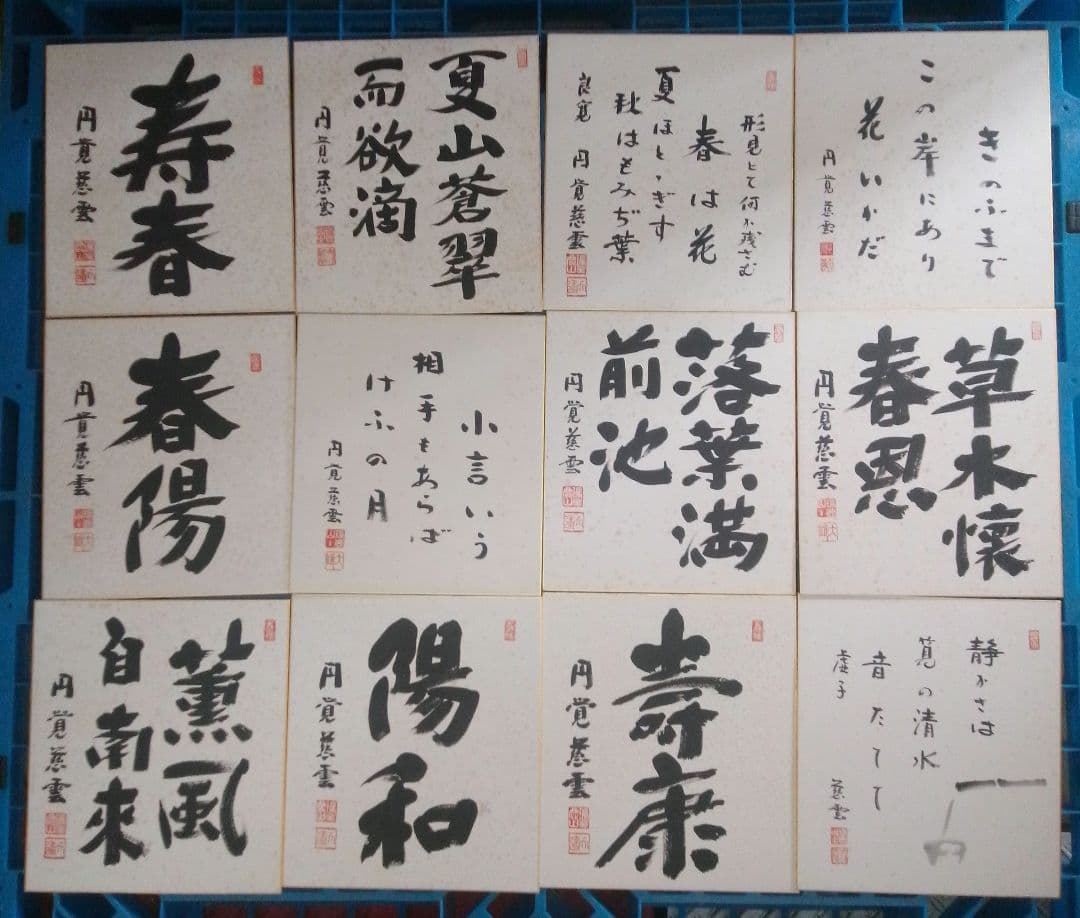 寿春
円覚慈雲
夏山蒼翠
而欲滴
円覚慈雲
形見とて何か残さむ
春は花
夏ほとゝぎす
秋はもみぢ葉
良寛 円覚慈雲
きのふまで
この岸にあり
花いかだ
円覚慈雲
春陽
円覚慈雲
小言いう
相手もあらば
けふの月
円覚慈雲
落葉満
前池
円覚慈雲
草木懐
春恩
円覚慈雲
薫風
自南来
円覚慈雲
陽和
円覚慈雲
壽康
円覚慈雲
静かさは
筧の清水
音たてて
虚子
慈雲